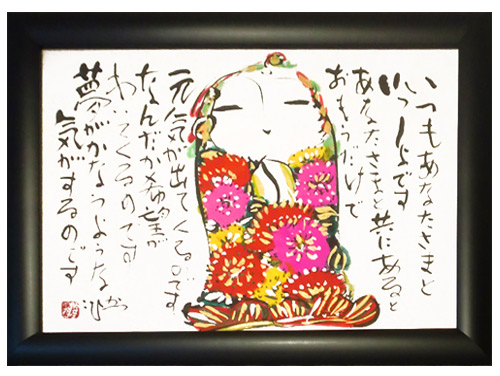 いつもあなたさまと
いっしょです
あなたさまと共にあると
おもうだけで
元気が出てくるのです
なんだか希望が
わいてくるのです
夢がかなうような
気がするのです